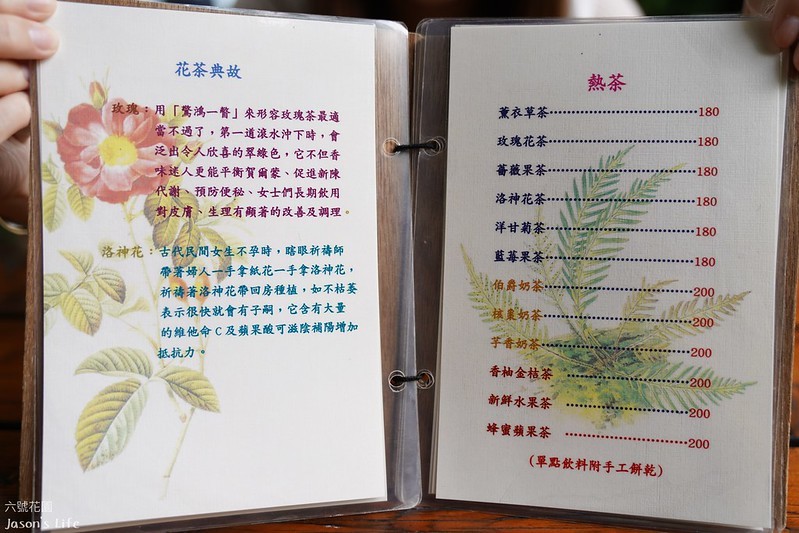 花茶典故
玫瑰：用「驚鴻一瞥」來形容玫瑰茶最適
當不過了，第一道滾水沖下時，會
泛出令人欣喜的翠綠色，它不但香
味迷人更能平衡賀爾蒙、促進新陳
代謝、預防便秘、女士們長期飲用
對皮膚、生理有顯著的改善及調理。
洛神花：古代民間女生不孕時，瞎眼祈禱師
帶著婦人一手拿紙花一手拿洛神花，
祈禱著洛神花帶回房種植，如不枯萎
表示很快就會有子嗣，它含有大量
的維他命C及蘋果酸可滋陰補陽增加
抵抗力。
熱茶
薰衣草茶 180
玫瑰花茶 180
薔薇果茶 180
洛神花茶 180
洋甘菊茶 180
藍莓果茶 180
伯爵奶茶 200
核棗奶茶 200
芋香奶茶 200
香柚金桔茶 200
新鮮水果茶 200
蜂蜜蘋果茶 200
(單點飲料附手工餅乾)
六號花園
Jason's Life